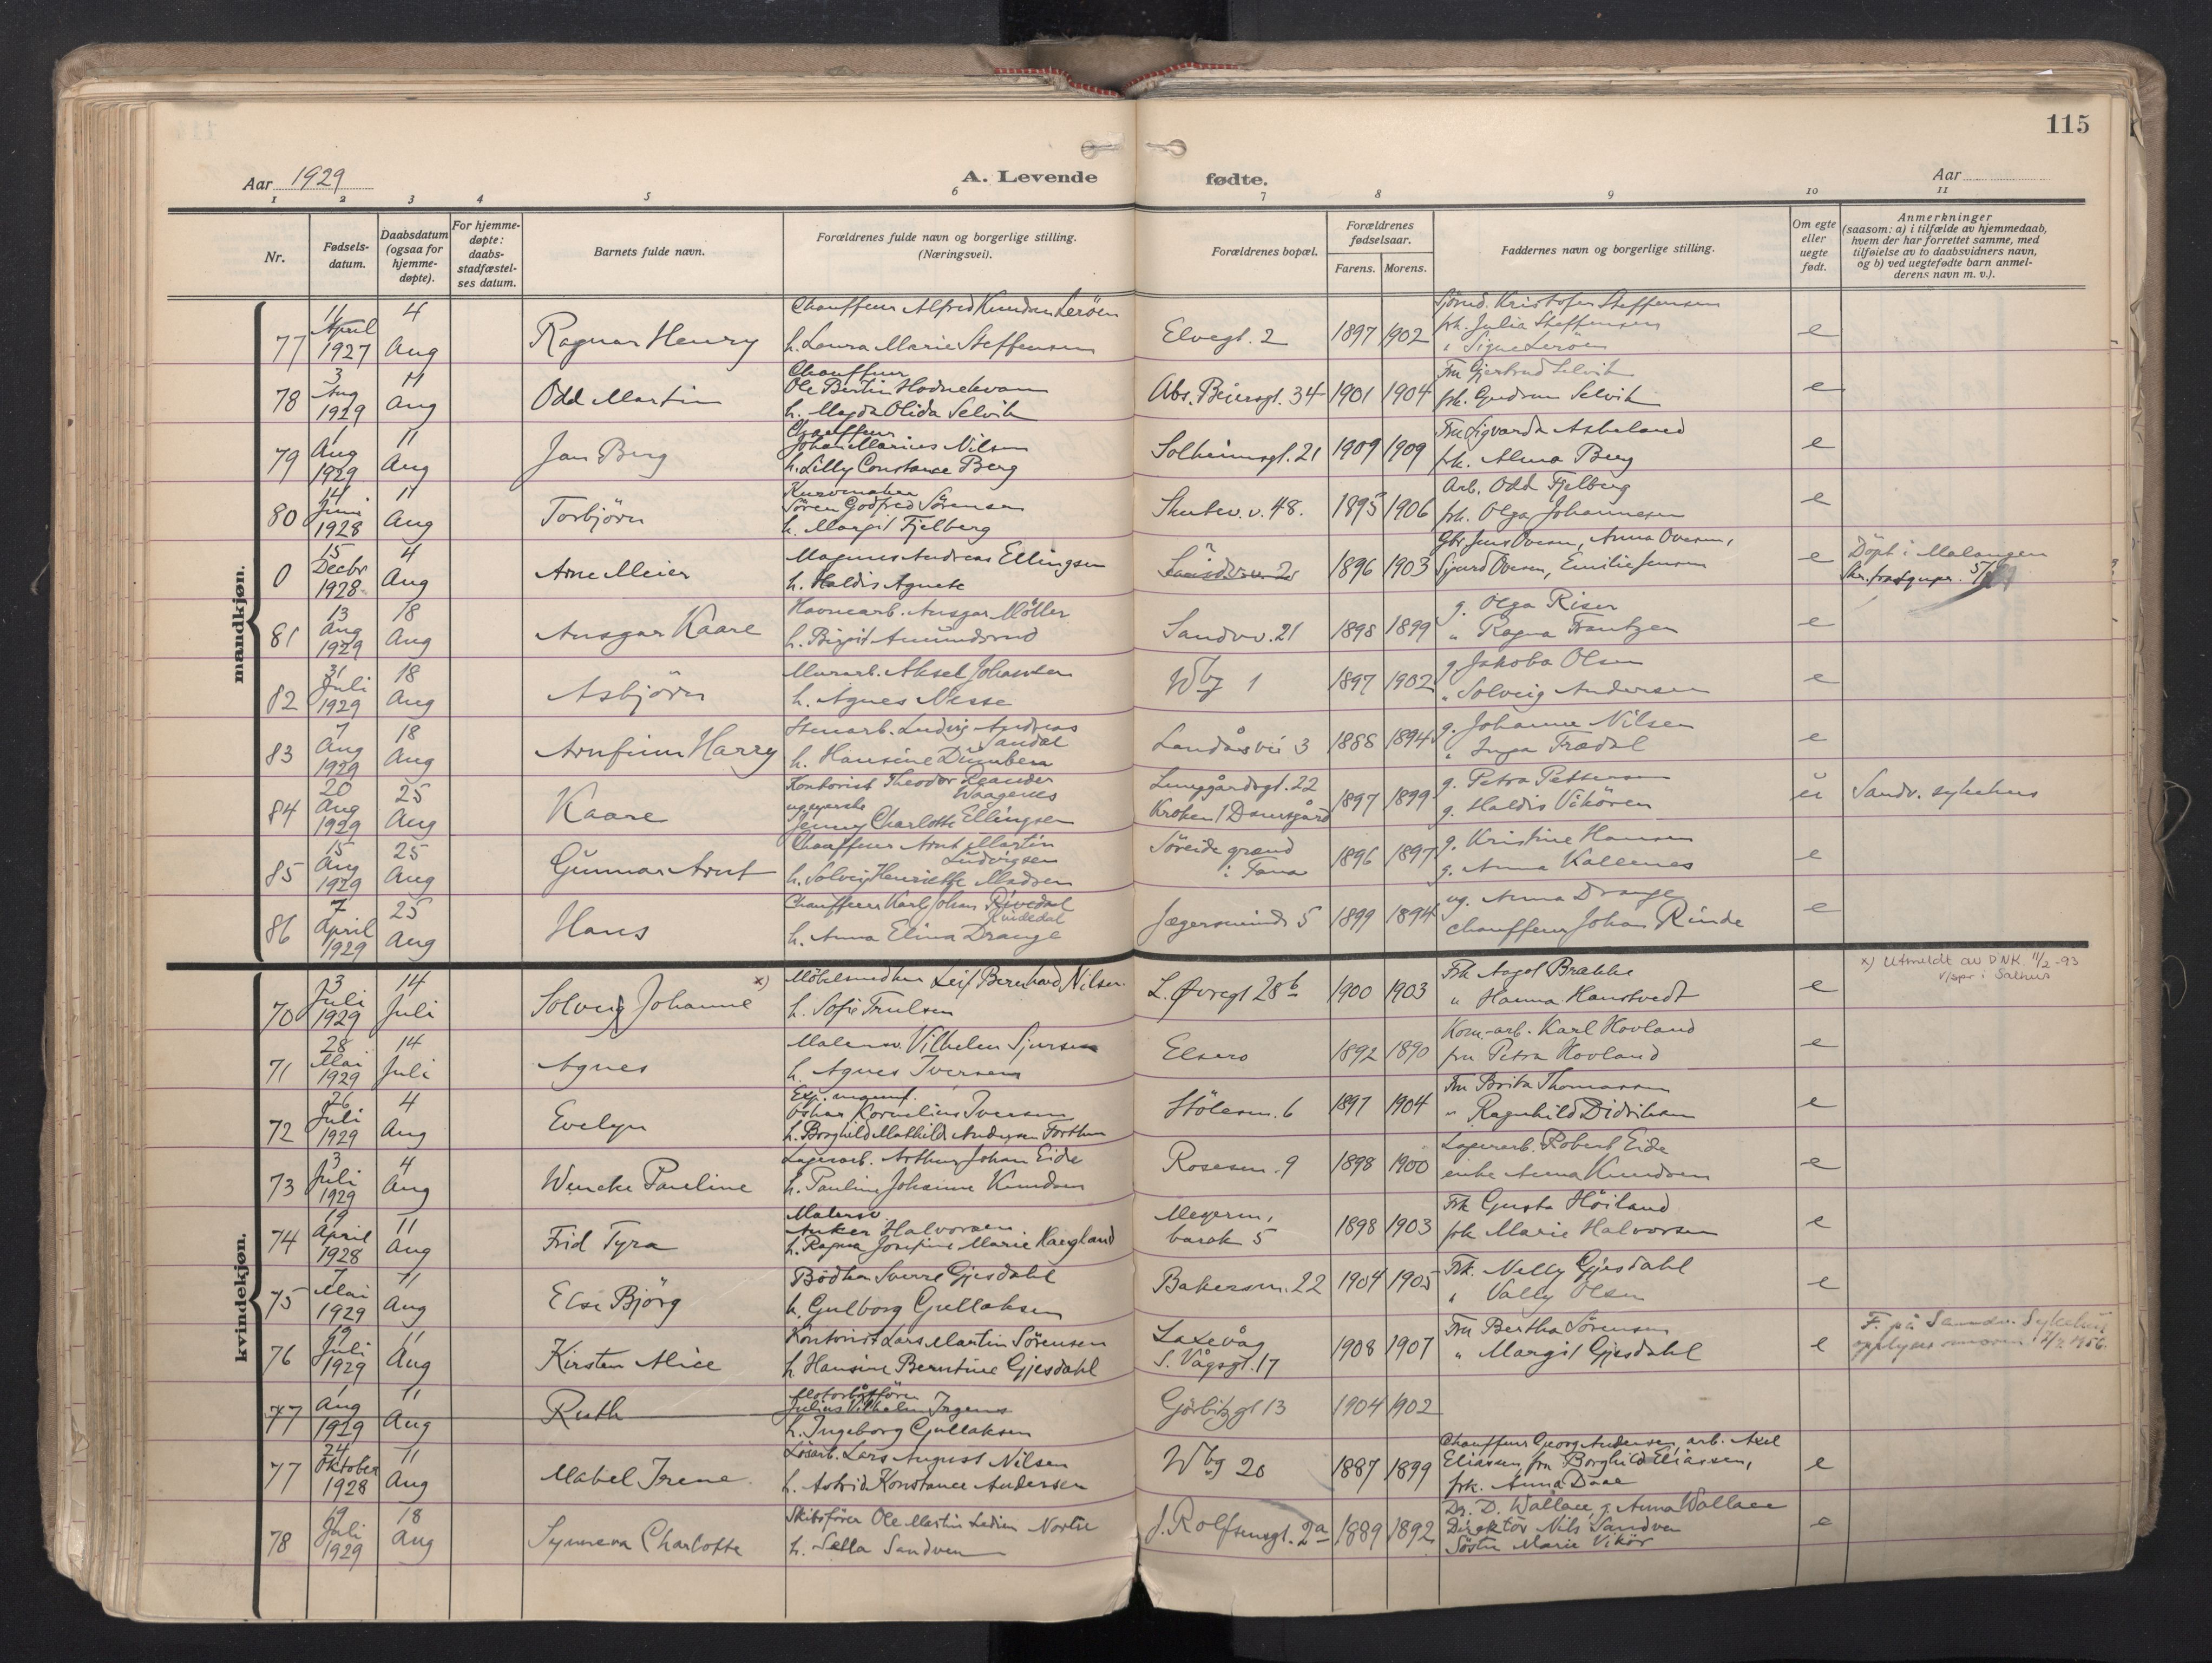 115
Aar 1929
A. Levende
fødte.
Aar
1 2 3 4 5 6 7 8 9 10 11
Nr.
Fødsels-
datum.
Daabsdatum
(ogsaa for
hjemme-
døpte).
For hjemme-
døpte:
daabs-
stadfæstel-
ses datum.
Barnets fulde navn.
Forældrenes fulde navn og borgerlige stilling.
(Næringsvei).
Forældrenes bopæl.
Forældrenes
fødselsaar.
Farens. Morens.
Faddernes navn og borgerlige stilling.
Om egte
eller
uegte
født.
Anmerkninger
(saasom: a) i tilfælde av hjemmedaab,
hvem der har forrettet samme, med
tilføielse av to daabsvidners navn,
og b) ved uegtefødte barn anmel-
derens navn m. v.).
mandkjøn.
77
11
April
1927
4
Aug
Ragnar Henry
Chauffeur Alfred Knudsen Lerøen
h. Laura Marie Steffensen
Elvegt. 2
1897 1902
Kristofer Steffensen
frk. Julia Steffensen
" Signe Lerøen
e
78
3
Aug
1929
11
Aug
Odd Martin
Chauffeur
Ole Bertin Hodnekvam
h. Magda Olida Selvik
Abs. Beiersgt. 34
1901 1904
Fru Gjertrud Selvik
frk. Gudrun Selvik
e
79
1
Aug
1929
11
Aug
Jan Berg
Chauffeur
Johan Marius Nilsen
h. Lilly Constance Berg
Solheimsgt. 21
1909 1909
Fru Sigvarda Askeland
frk. Alma Berg
e
80
14
Juni
1928
11
Aug
Torbjörn
Kurvemaker
Sören Godfred Sörensen
h. Margit Fjelberg
Skutev. v. 48.
1895 1906
Arb. Odd Fjelberg
frk. Olga Johannesen
e
0
15
Decbr
1928
4
Aug
Arne Meier
Magnus Andreas Ellingsen
h. Haldis Agnete
1896 1903
Gbr Jens Ovesen, Anna Ovesen,
Sigurd Ovesen, Emilie Jensen
e
Döpt i Malangen
81
13
Aug
1929
18
Aug
Ansgar Kaare
Havnearb. Ansgar Möller
h. Birgit Amundsrud
Sandvv. 21
1898 1899
g. Olga Riser
" Ragna Frantzen
e
82
31
Juli
1929
18
Aug
Asbjörn
Murarb. Aksel Johansen
h. Agnes Nesse
Wbg 1
1897 1902
g. Jakoba Olsen
" Solveig Andersen
e
83
7
Aug
1929
18
Aug
Arnfinn Harry
Stenarb. Ludvig Andreas
Sandal
h. Hansine
Landåsvei 3
1888 1894
g. Johanne Nilsen
" Inga Trædal
e
84
20
Aug
1929
25
Aug
Kaare
Kontorist Theodor Leander
Waagenes
ugpperske
Jenny Charlotte Ellingsen
Lunggårdsgt. 22
Kroken 1 Damsgård
1897 1899
g. Petra Pettersen
g. Haldis Vikören
u
Sandv. sykehus
85
15
Aug
1929
25
Aug
Gunnar Arnt
Chauffeur Arnt Martin
Ludvigsen
h. Solveig Henriette Madsen
Söreide grænd
i Fana
1896 1897
g. Kristine Hansen
g. Anna Kallenes
e
86
7
April
1929
25
Aug
Hans
Chauffeur Karl Johan Rivedal
Rindedal
h. Anna Elina Drange
Jægersmind 5
1899 1894
ug. Anna Drange
chauffeur Johan Rinde
e
kvindekjøn.
70
3
Juli
1929
14
Juli
Solveig Johanne x)
Möbelsnedker Leif Bernhard Nilsen
h. Sofie Trulsen
L. Øvregt 28b
1900 1903
Frk Aagot Brække
" Hanna Hanstvedt
e
x) Utmeldt av DNK 11/2-93
v/spr i Salhus
71
28
Mai
1929
14
Juli
Agnes
Malersv. Vilhelm Sjursen
h. Agnes Iversen
Elsero
1892 1890
Kom.-arb. Karl Hovland
fru Petra Hovland
e
72
26
Juli
1929
4
Aug
Evelyn
Oskar Kornelius Iversen
h. Borghild Mathilde Andersen Forthun
Hölesm. 6
1897 1904
Fru Brita Thomassen
" Ragnhild Didriksen
e
73
3
Juli
1929
4
Aug
Wencke Pauline
Lagerarb. Arthur Johan Eide
h. Pauline Johanne Knudsen
Rosesm. 9
1898 1900
Lagerarb. Robert Eide
enke Anna Knudsen
e
74
19
April
1928
11
Aug
Frid Tyra
Malersv
Anker Halvorsen
h. Ragna Josefine Marie Haegland
Meyerm,
barak 5
1898 1903
Frk Gusta Höiland
frk Marie Halvorsen
e
75
7
Mai
1929
11
Aug
Else Björg
Bödker Sverre Gjesdahl
h. Gulborg Gullaksen
Bakersm. 22
1904 1905
Frk. Nelly Gjesdahl
" Vally Olsen
e
76
19
Juli
1929
11
Aug
Kirsten Alice
Kontorist Lars Martin Sörensen
h Hansine Berntine Gjesdahl
Laxevåg
S. Vågsgt. 17
1908 1907
Fru Bertha Sörensen
" Margit Gjesdahl
e
F. på Sandv. Sykehus
opplyser moren
77
1
Aug
1929
11
Aug
Ruth
Motorbåtförer
Julius Vilhelm Irgens
h. Ingeborg Gullaksen
Görbitzgt 13
1904 1902
77
24
Oktober
1928
11
Aug
Mabel Irene
Lösarb. Lars August Nilsen
h. Astrid Konstance Andersen
Wbg 20
1887 1899
Chauffeur Georg Andersen, arb. Axel
Eliassen, fru Borghild Eliassen,
frk. Anna Daae
e
78
19
Juli
1929
18
Aug
Synneva Charlotte
Skibsförer Ole Martin Ledien Nortse
h. Sella Sandven
J. Rolfsensgt. 2a
1889 1892
Dr. D. Wallace, g Anna Wallace
Direktör Nils Sandven
Söster Marie Vikör
e